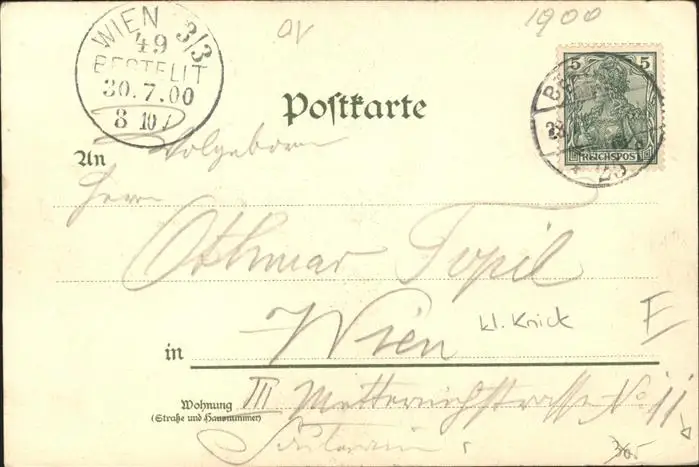 1900
WIEN 3/3
49
BESTELLT
30.7.00
8 10
5 5
REICHSPOST
Postkarte
An Wolgeboren
Herrn
Othmar Topil
kl. Knick
E
in Wien
Wohnung III Metternichstrasse No 11
(Straße und Hausnummer)
Souterrain